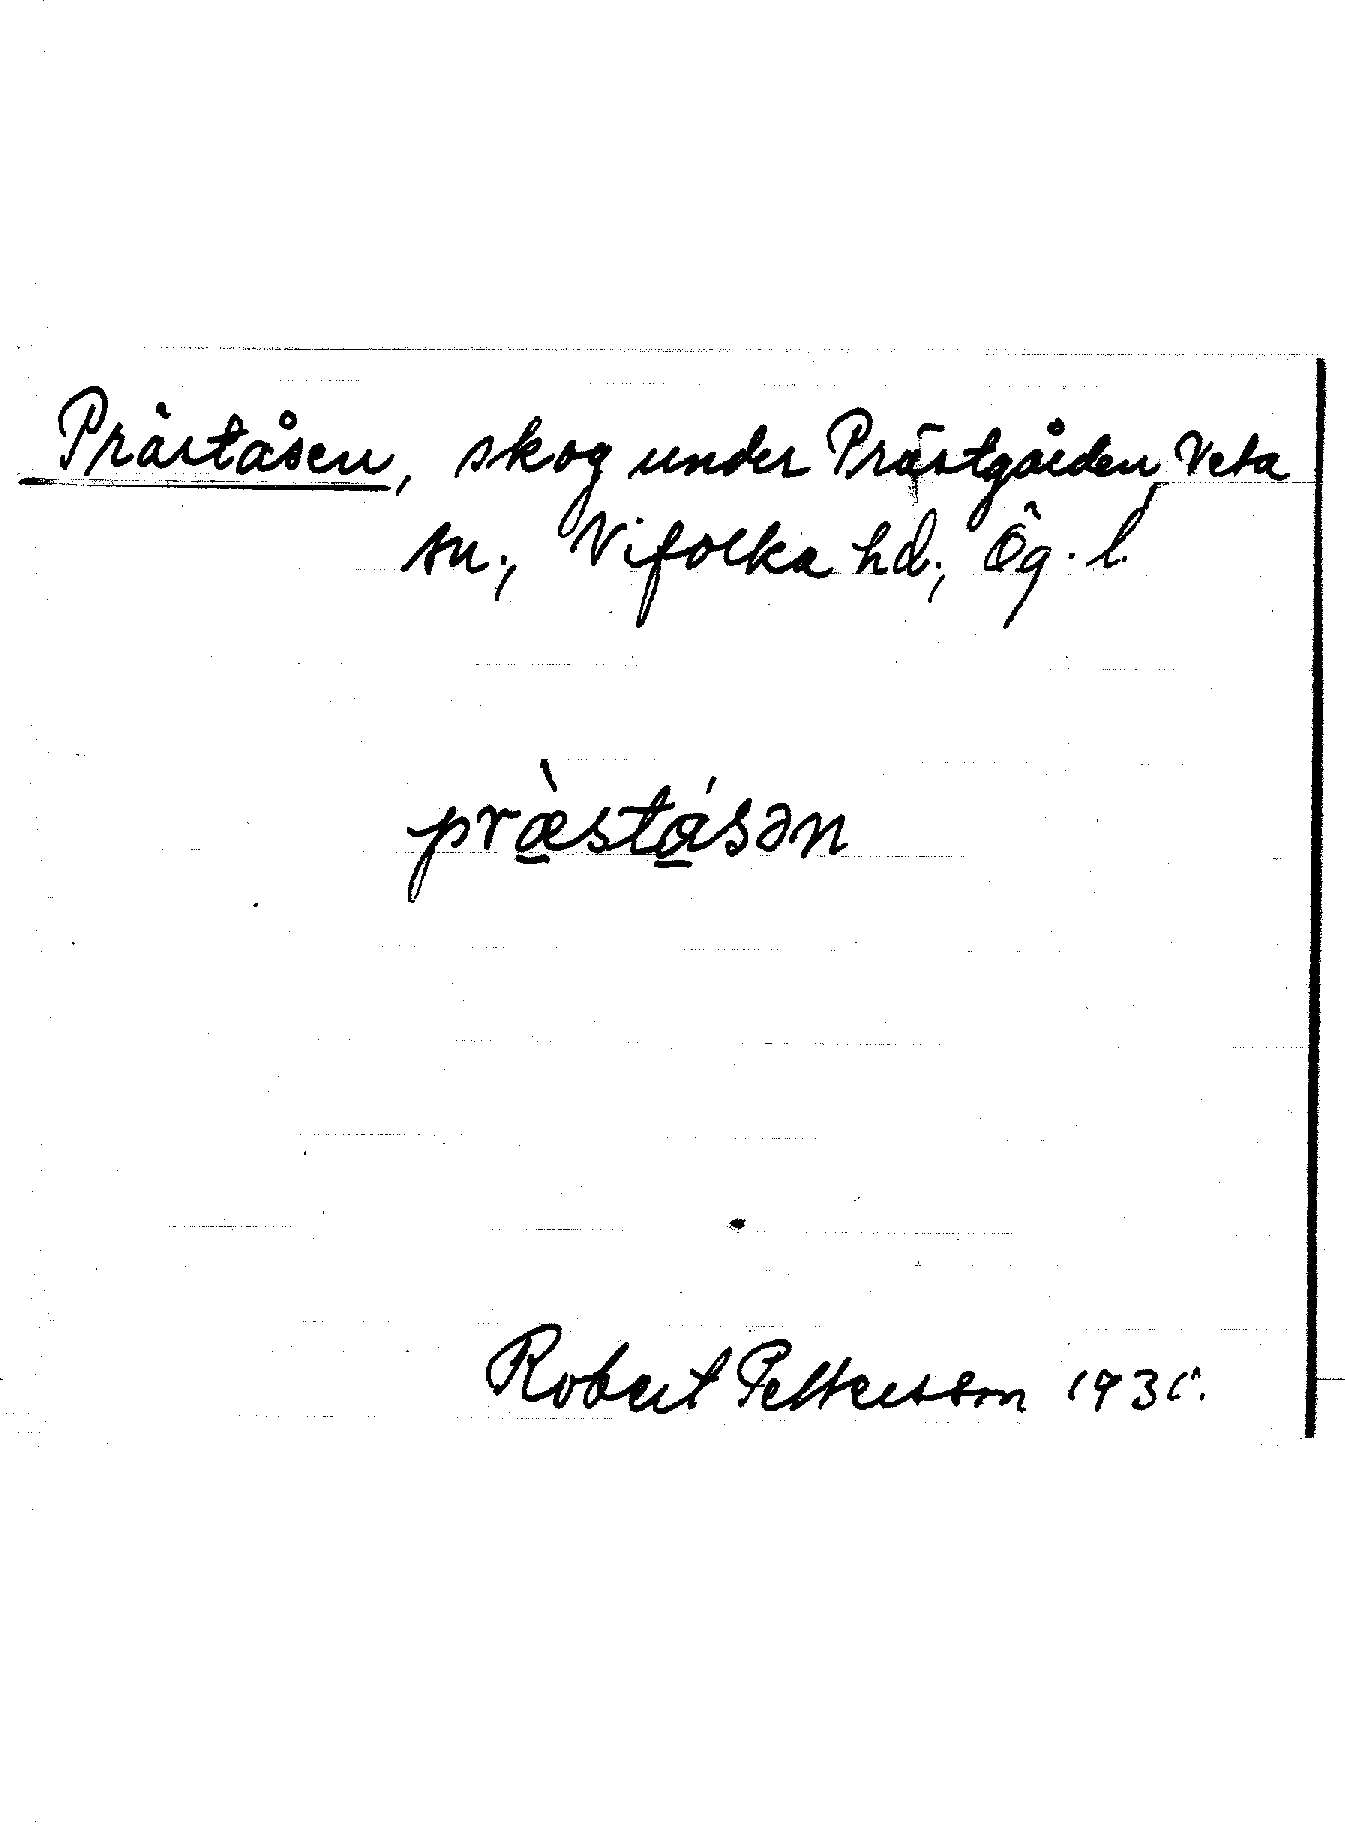 Präståsen, skog under Prästgården, Veta
sn., Vifolka hd., Ög. l.
præ̀stásən
Robert Pettersson